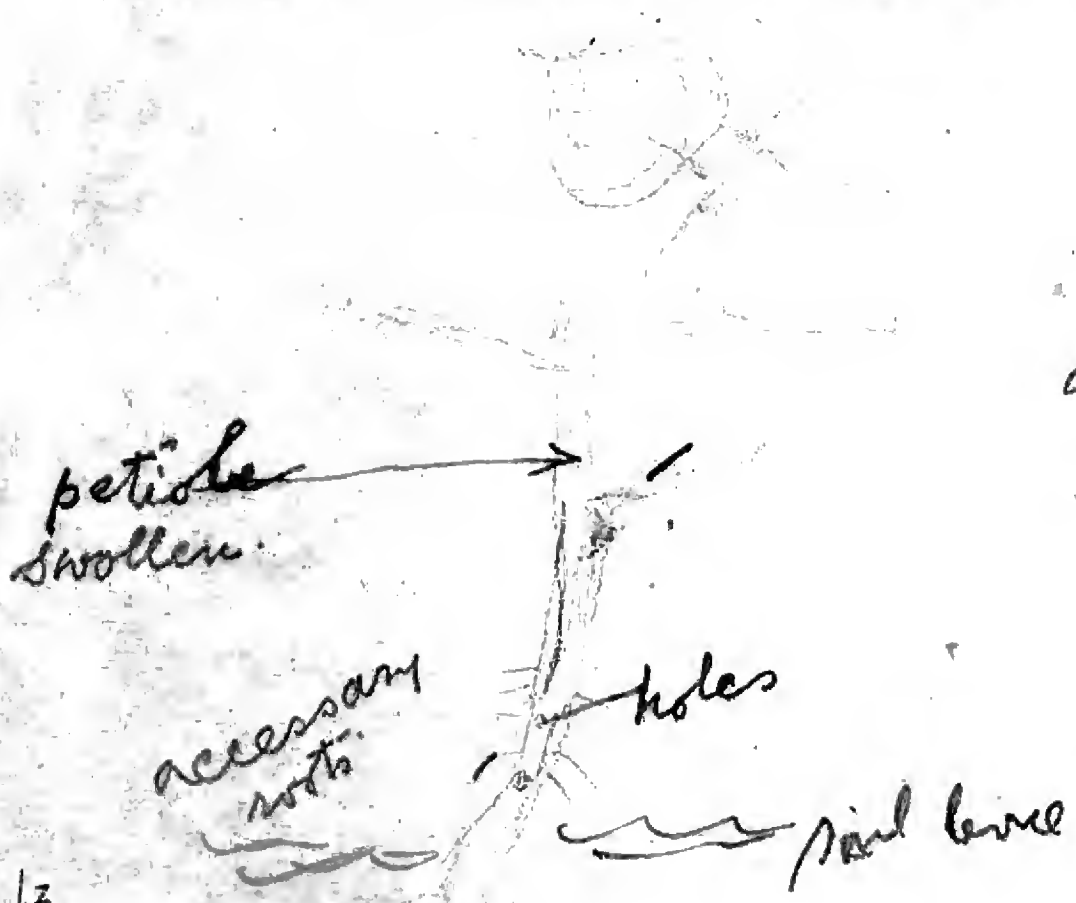 petiole
swollen.
accessary
roots
holes
soil level